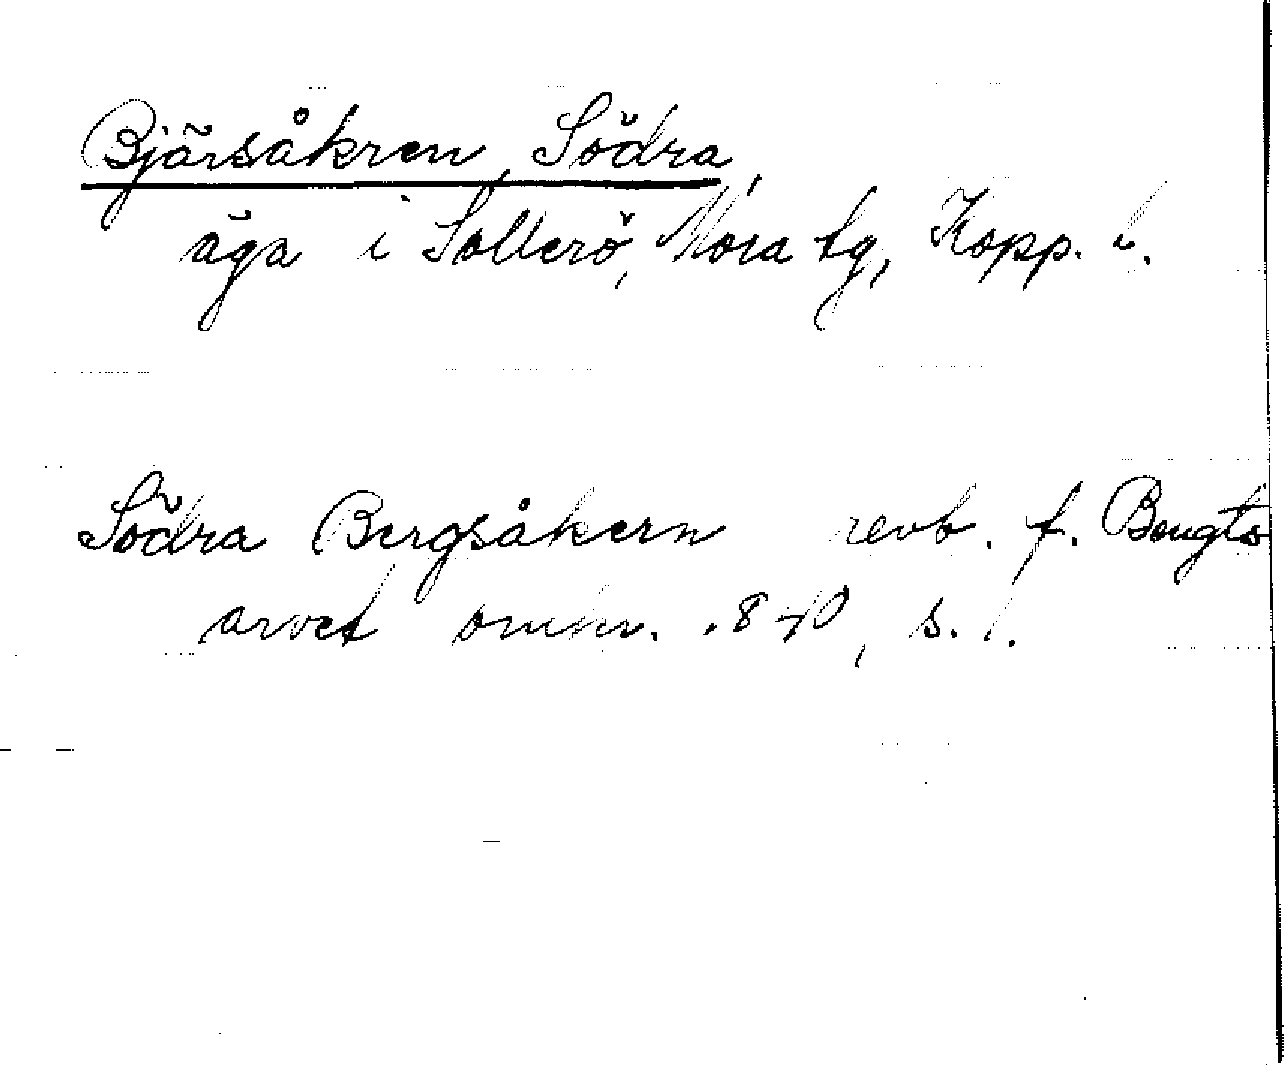 Bjärsåkren, Södra
äga i Sollerö, Mora tg, Kopp. l.
Södra Bergsåkern revb. f. Bengts
arvet omkr. 1840, s. 1.